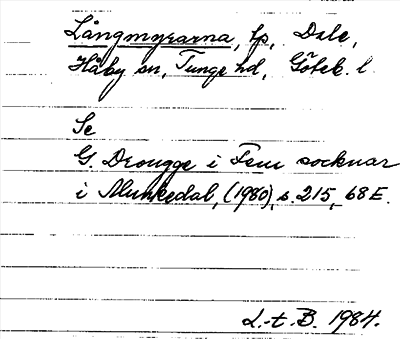 Långmyrarna, tp, Dale,
Håby sn, Tunge hd, Göteb. l.
Se
G. Drougge i Fem socknar
i Munkedal, (1980), s. 215, 68 E.
L.-t. B. 1984.